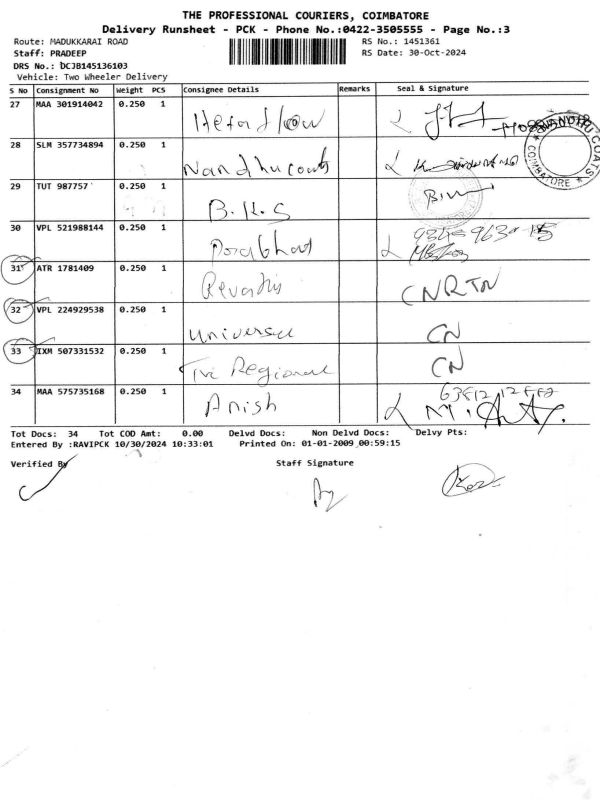 THE PROFESSIONAL COURIERS, COIMBATORE
Delivery Runsheet - PCK - Phone No.:0422-3505555 - Page No.:3
Route: MADUKKARAI ROAD
RS No.: 1451361
Staff: PRADEEP
RS Date: 30-Oct-2024
DRS No.: DCJB145136103
Vehicle: Two Wheeler Delivery
S No Consignment No Weight PCS Consignee Details Remarks Seal & Signature
27 MAA 301914042 0.250 1
28 SLM 357734894 0.250 1 Nandhu coats
NANDHU COATS COIMBATORE
29 TUT 987757 0.250 1 B.K.S
30 VPL 521988144 0.250 1
31 ATR 1781409 0.250 1 CNRTN
32 VPL 224929538 0.250 1 Universal CN
33 IXM 507331532 0.250 1 Regional CN
34 MAA 575735168 0.250 1 Anish
Tot Docs: 34 Tot COD Amt: 0.00 Delvd Docs: Non Delvd Docs: Delvy Pts:
Entered By :RAVIPCK 10/30/2024 10:33:01 Printed On: 01-01-2009 00:59:15
Verified By
Staff Signature